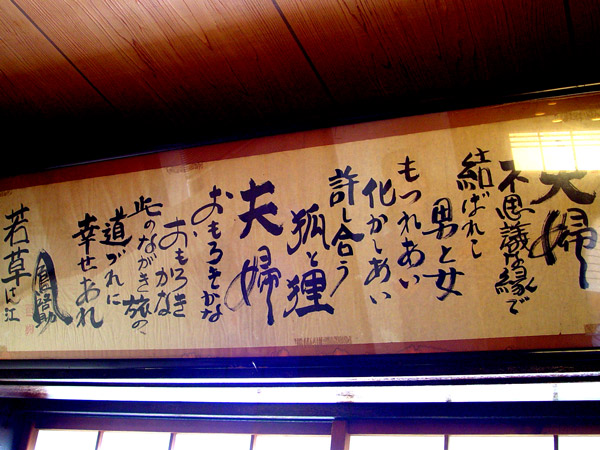 夫婦
不思議な縁で
結ばれし
男と女
もつれあい
化かしあい
許し合う
狐と狸
夫婦
おもろさかな
おもろき
かな
此のながき旅の
道づれに
幸せあれ
若草に江